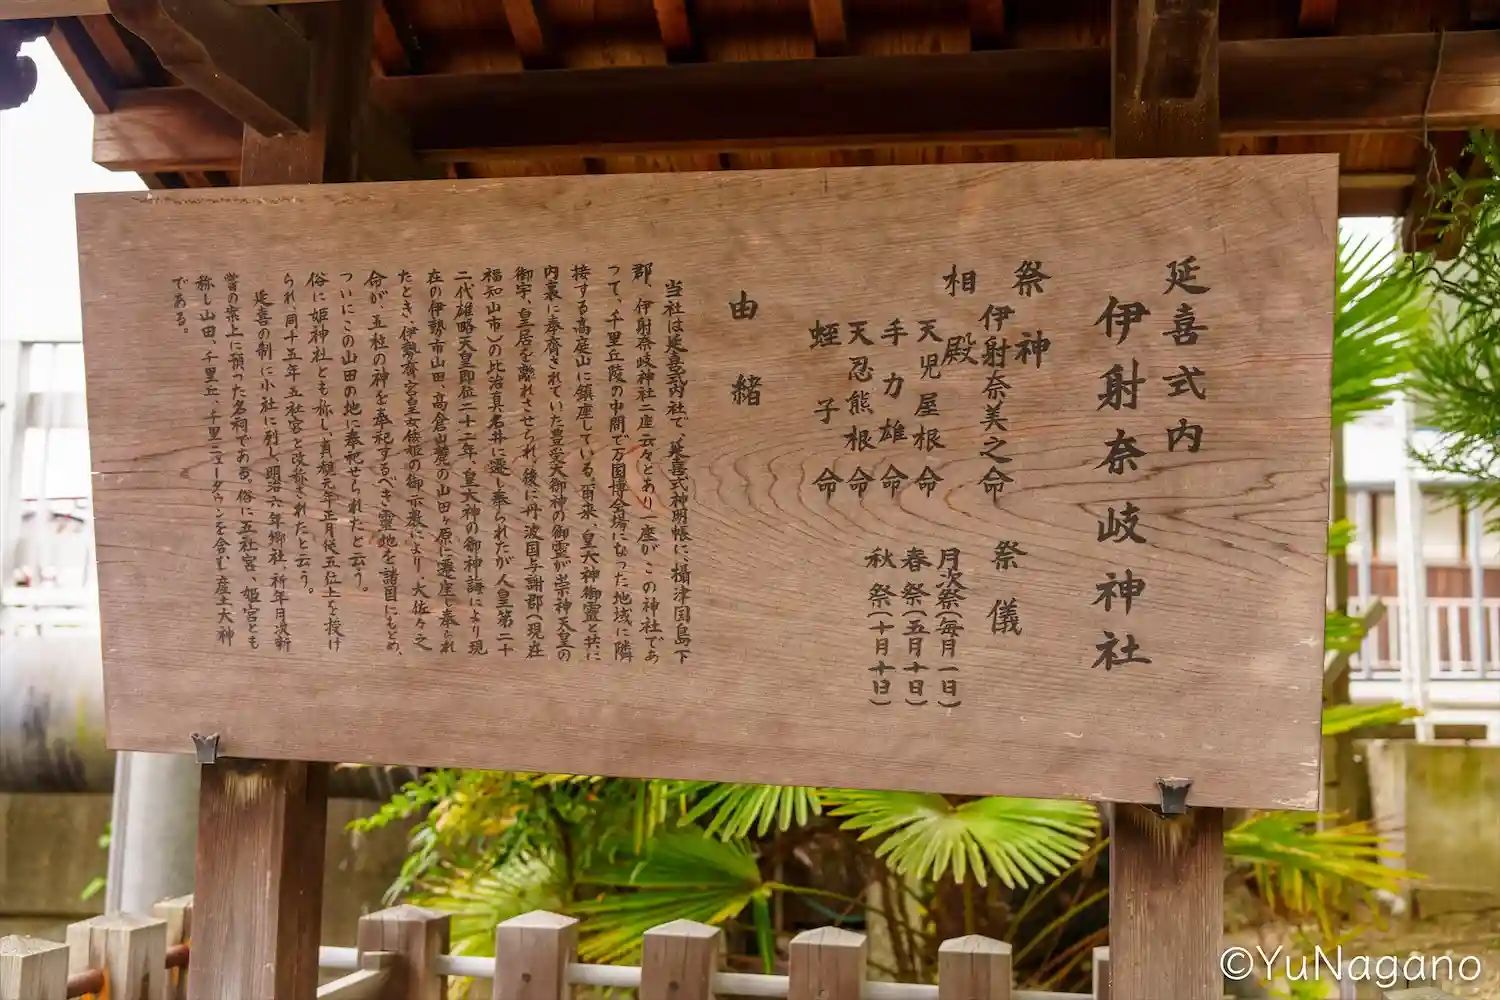 延喜式内
伊射奈岐神社
祭神
伊射奈美之命
相殿
天児屋根命
手力雄命
天忍熊根命
蛭子命
祭儀
月次祭(毎月一日)
春祭(五月十日)
秋祭(十月十日)
由緒
当社は延喜式内社で、延喜式神明帳に攝津国島下
郡、伊射奈岐神社二座云々とあり一座が、この神社であ
つて、千里丘陵の中間で万国博会場になった地域に隣
接する高庭山に鎮座している。爾来、皇大神御霊と共に
内裏に奉齋されていた豊受大御神の御霊が崇神天皇の
御宇、皇居を離れさせられ、後に丹波国与謝郡(現在
福知山市)の比治真名井に遷し奉られたが人皇第二十
二代雄略天皇即位二十二年、皇大神の御神誨により現
在の伊勢市山田、高倉山麓の山田ヶ原に遷座し奉られ
たとき、伊勢齋宮皇女倭姫の御示教により、大佐々之
命が、五柱の神を奉祀するべき霊地を諸国にもとめ、
ついにこの山田の地に奉祀せられたと云う。
俗に姫神社とも称し、貞観元年正月従五位上を授け
られ同十五年五社宮と改称されたと云う。
延喜の制に小社に列し明治六年郷社、祈年月次新
嘗の案上に預った名祠である。俗に五社宮、姫宮とも
称し山田、千里丘、千里ニュータウンを含む産土大神
である。
©YuNagano